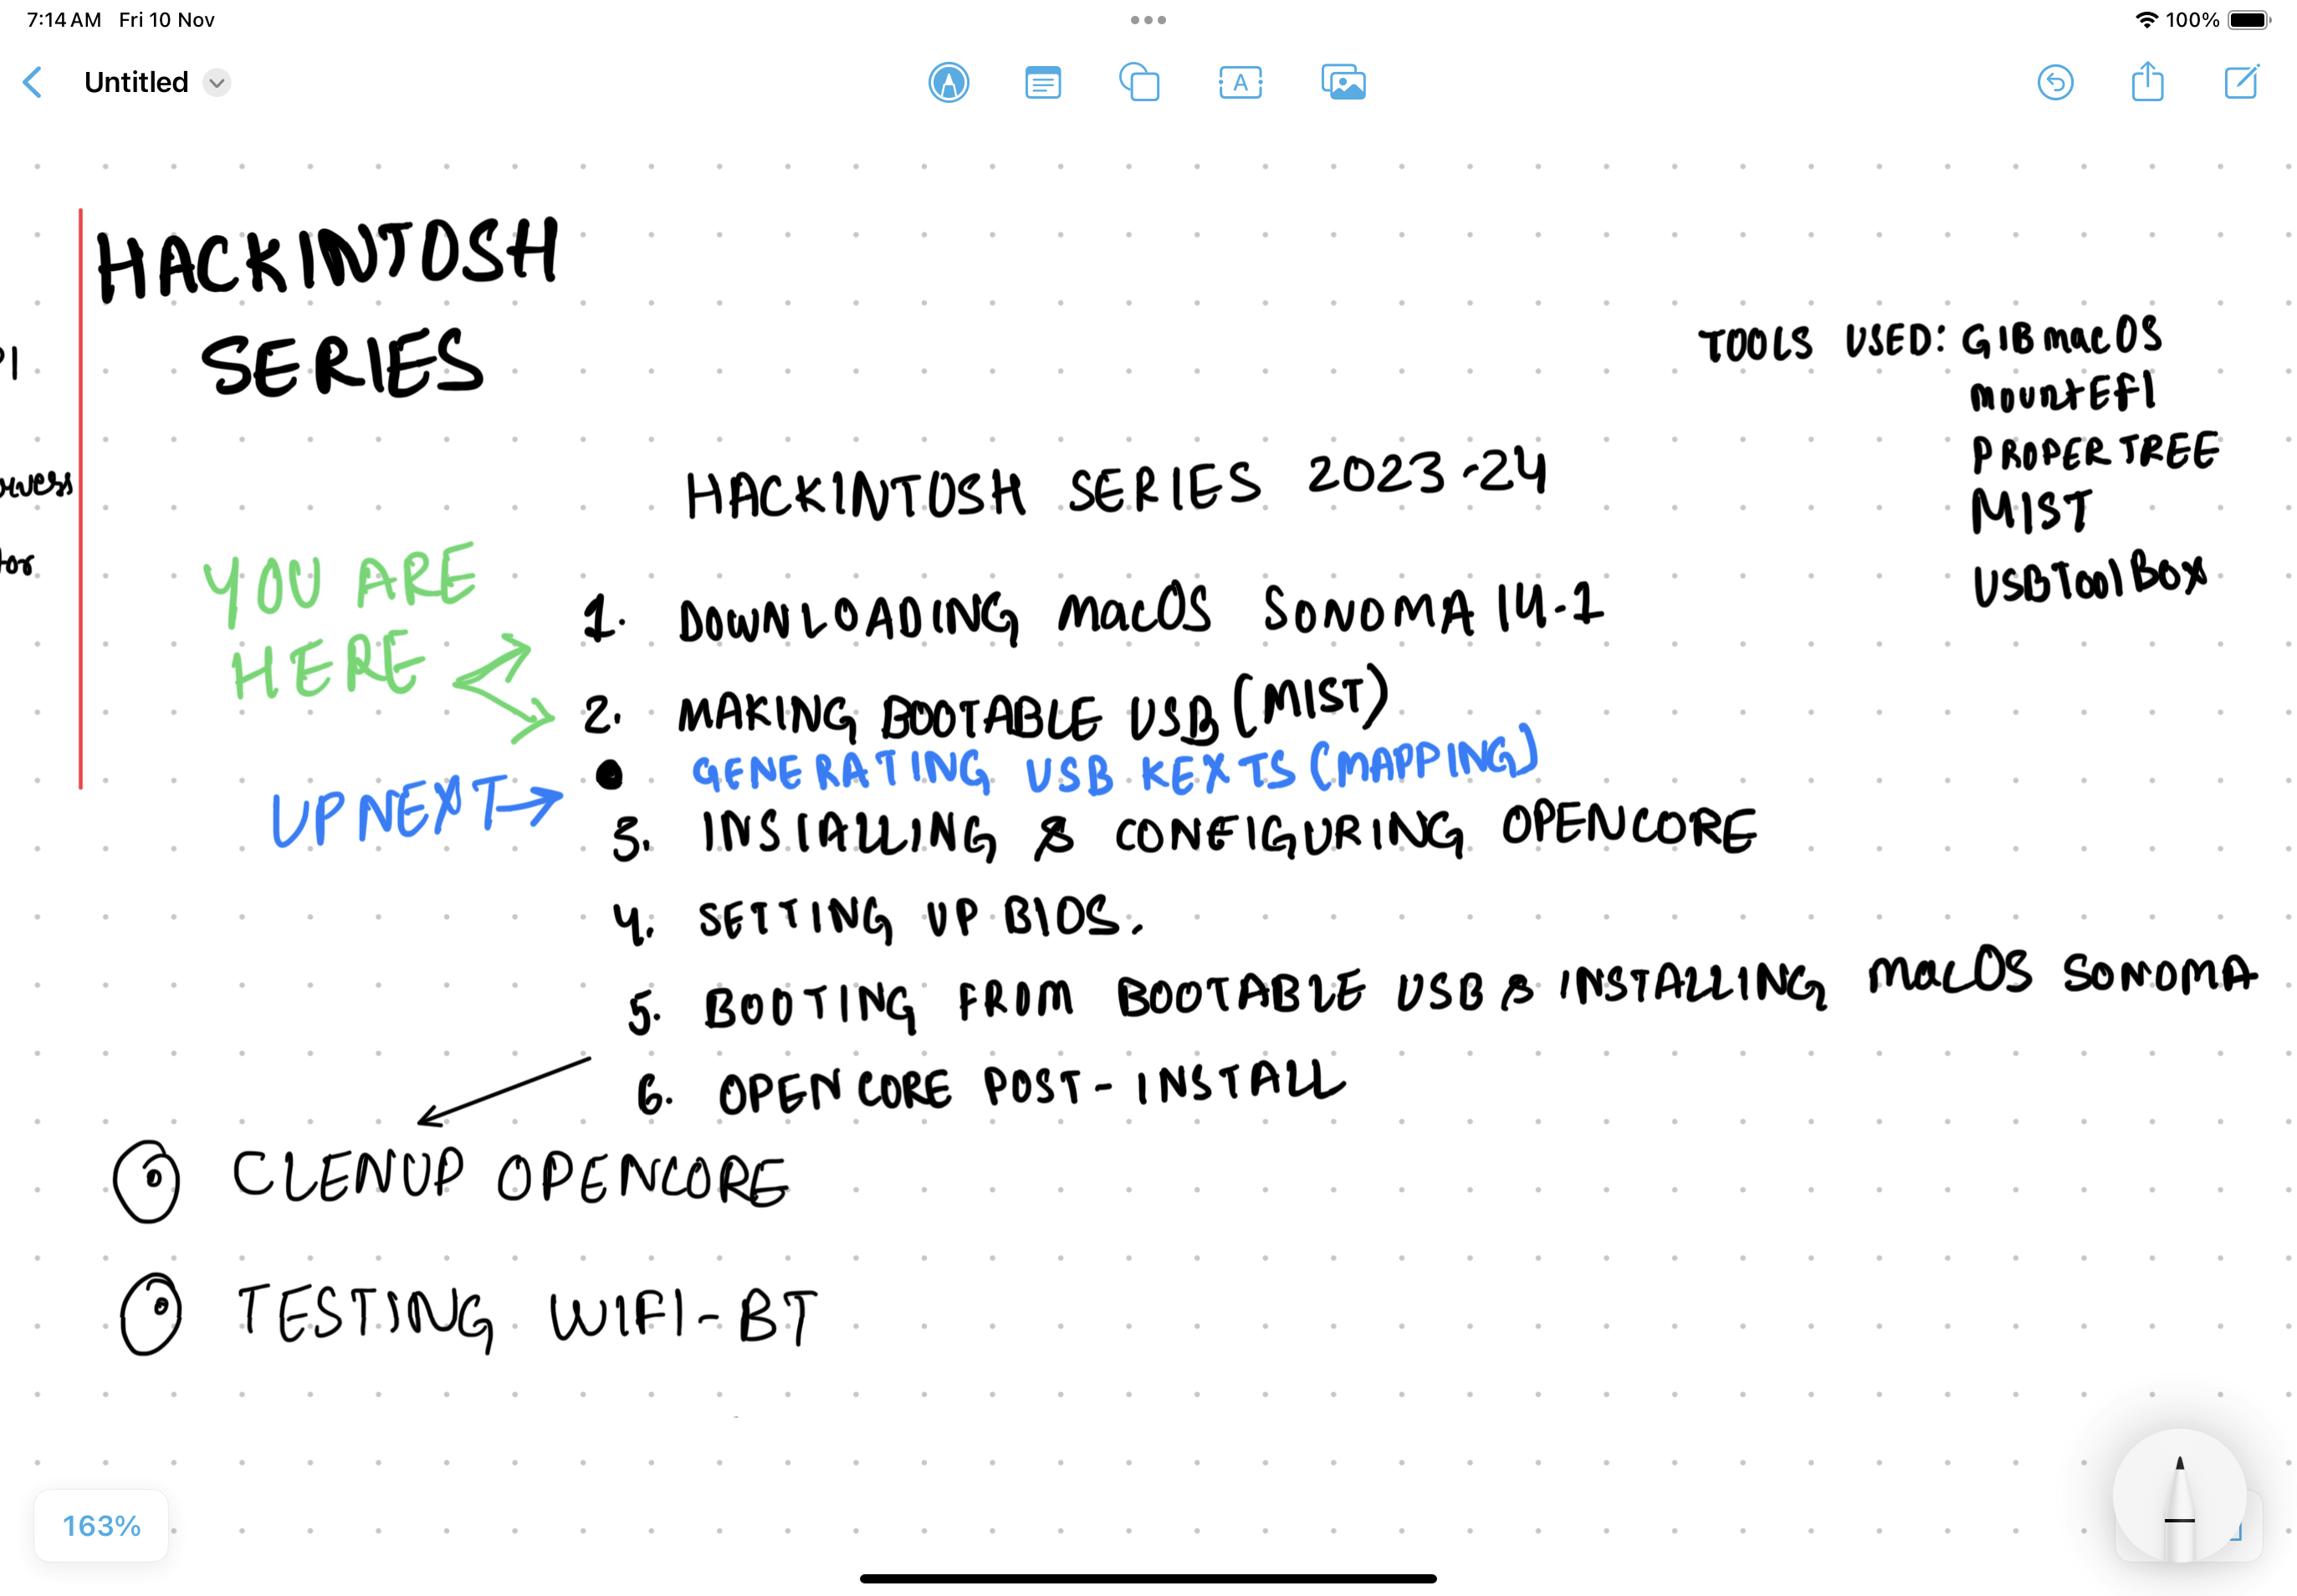 7:14 AM Fri 10 Nov
100%
Untitled
A
HACKINTOSH
SERIES
TOOLS USED: GIBmacOS
mountEfI
PROPERTREE
MIST
USBToolBox
HACKINTOSH SERIES 2023-24
YOU ARE
HERE
1. DOWNLOADING macOS SONOMA 14.1
2. MAKING BOOTABLE USB (MIST)
GENERATING USB KEXTS (MAPPING)
UPNEXT
3. INSTALLING & CONFIGURING OPENCORE
4. SETTING UP BIOS.
5. BOOTING FROM BOOTABLE USB & INSTALLING macOS SONOMA
6. OPENCORE POST-INSTALL
CLENUP OPENCORE
TESTING WIFI-BT
163%